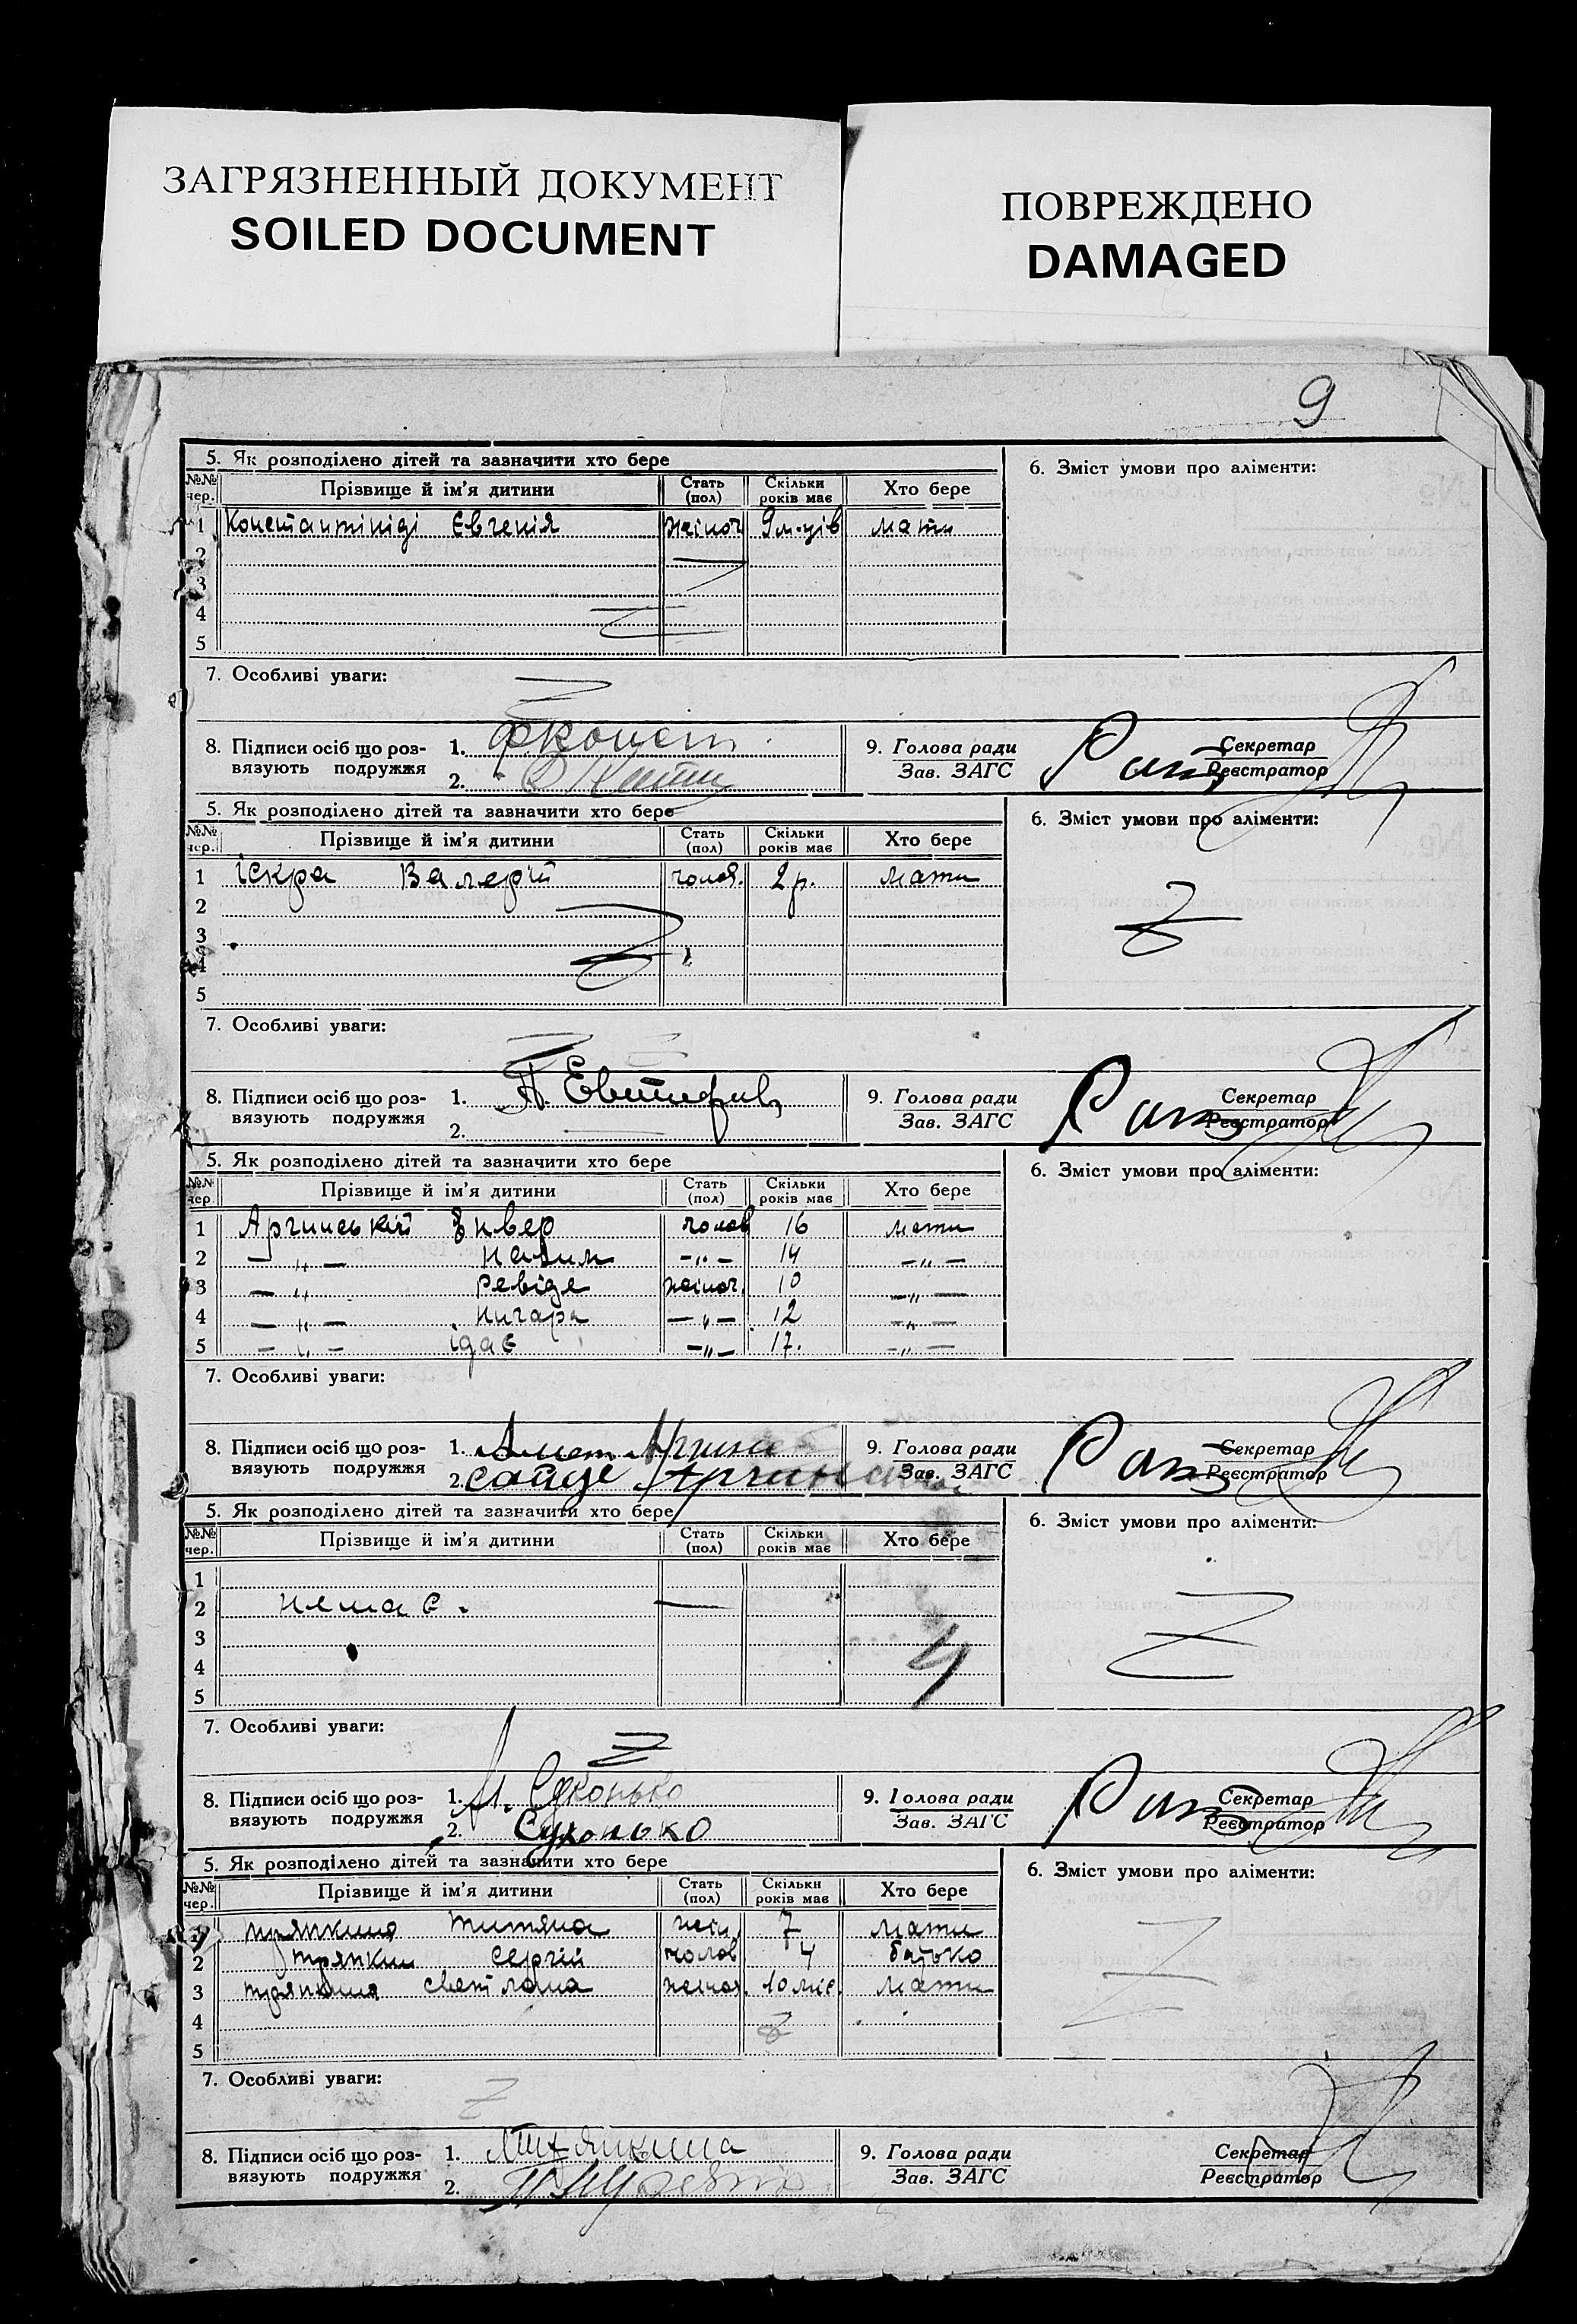 ЗАГРЯЗНЕННЫЙ ДОКУМЕНТ
SOILED DOCUMENT
ПОВРЕЖДЕНО
DAMAGED
9
5. Як розподілено дітей та зазначити хто бере
6. Зміст умови про аліменти:
№№ чер. Прізвище й ім'я дитини Стать (пол) Скільки років має Хто бере
1 Константініді Євгенія жіноч 9 м-ців мати
2
3
4
5
7. Особливі уваги:
8. Підписи осіб що роз-вязують подружжя
1. ФКонст
2.
9. Голова ради
Зав. ЗАГС
Секретар
Реєстратор
5. Як розподілено дітей та зазначити хто бере
6. Зміст умови про аліменти:
№№ чер. Прізвище й ім'я дитини Стать (пол) Скільки років має Хто бере
1 Іскра Валерій чолов. 2 р. мати
2
3
4
5
7. Особливі уваги:
8. Підписи осіб що роз-вязують подружжя
1.
2.
9. Голова ради
Зав. ЗАГС
Секретар
Реєстратор
5. Як розподілено дітей та зазначити хто бере
6. Зміст умови про аліменти:
№№ чер. Прізвище й ім'я дитини Стать (пол) Скільки років має Хто бере
1 Аргинський Энвер чолов 16 мати
2 — „ — Назим — „ — 14 — „ —
3 — „ Ревіде жіноч. 10 — „ —
4 — „ — Нигара — „ — 12 — „ —
5 — „ — ідає — „ — 17. — „ —
7. Особливі уваги:
8. Підписи осіб що роз-вязують подружжя
1. Амет Аргин
2. сайде
9. Голова ради
Зав. ЗАГС
Секретар
Реєстратор
5. Як розподілено дітей та зазначити хто бере
6. Зміст умови про аліменти:
№№ чер. Прізвище й ім'я дитини Стать (пол) Скільки років має Хто бере
1
2 немає.
3
4
5
7. Особливі уваги:
8. Підписи осіб що роз-вязують подружжя
1. М. Сухонько
2. Сухонько
9. Голова ради
Зав. ЗАГС
Секретар
Реєстратор
5. Як розподілено дітей та зазначити хто бере
6. Зміст умови про аліменти:
№№ чер. Прізвище й ім'я дитини Стать (пол) Скільки років має Хто бере
1 Тряпкина Титяна жін. 7 мати
2 Тряпкин Сергій чолов 4 батько
3 Тряпкина Светлана жіноч. 10 міс. мати
4
5
7. Особливі уваги:
8. Підписи осіб що роз-вязують подружжя
1.
2.
9. Голова ради
Зав. ЗАГС
Секретар
Реєстратор